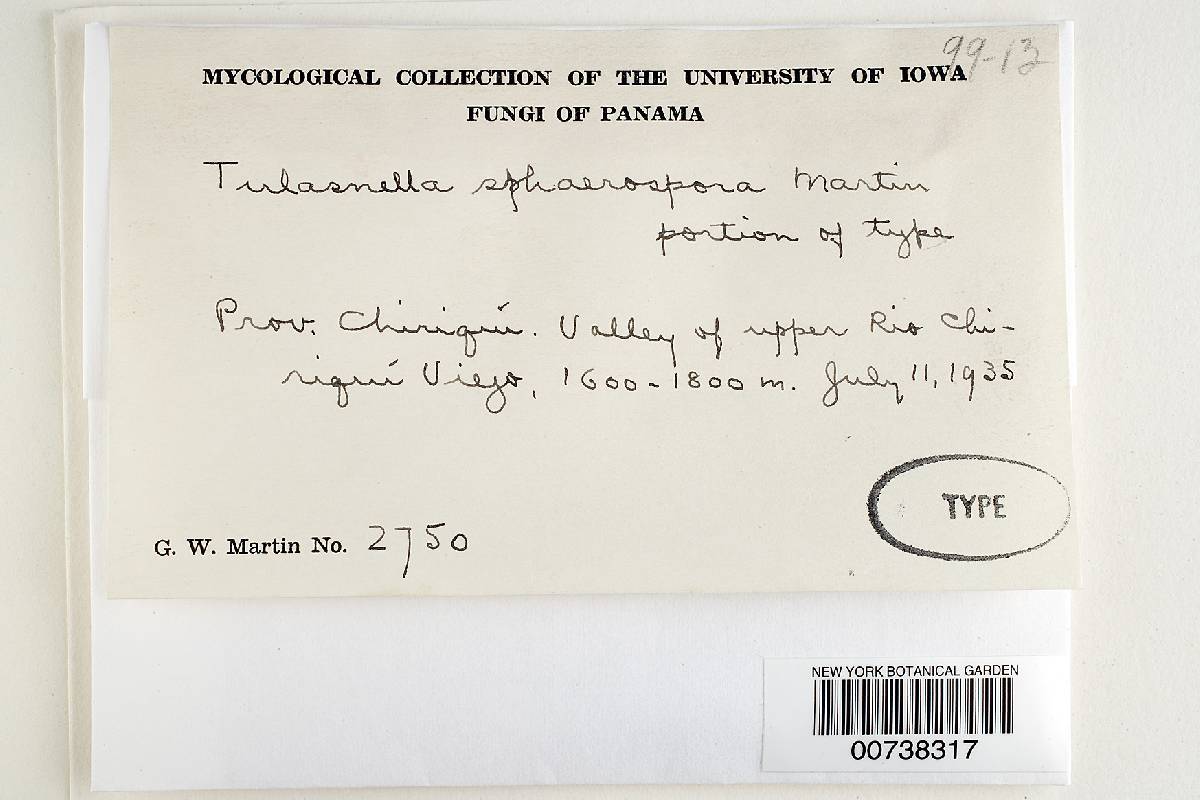 99-13
MYCOLOGICAL COLLECTION OF THE UNIVERSITY OF IOWA
FUNGI OF PANAMA
Tulasnella sphaerospora Martin
portion of type
Prov. Chiriquí. Valley of upper Rio Chi-
riquí Viejo, 1600-1800 m. July 11, 1935
TYPE
G. W. Martin No. 2750
NEW YORK BOTANICAL GARDEN
00738317